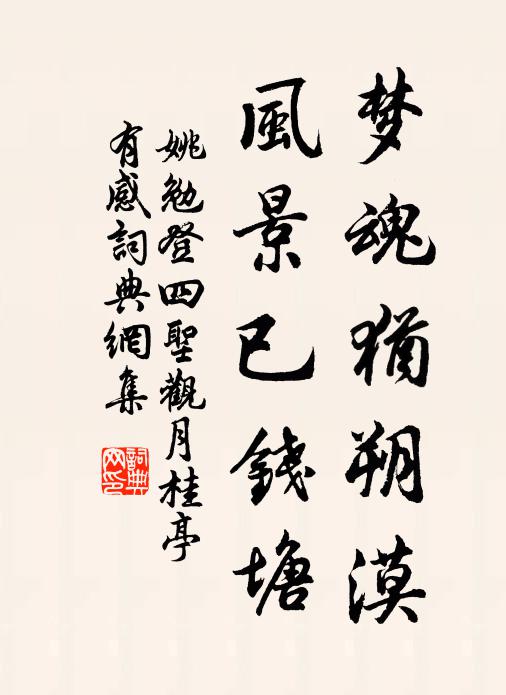 梦魂猶朔漠
風景已錢塘
姚勉登四聖觀月桂亭
有感詞典網集
詞典网印